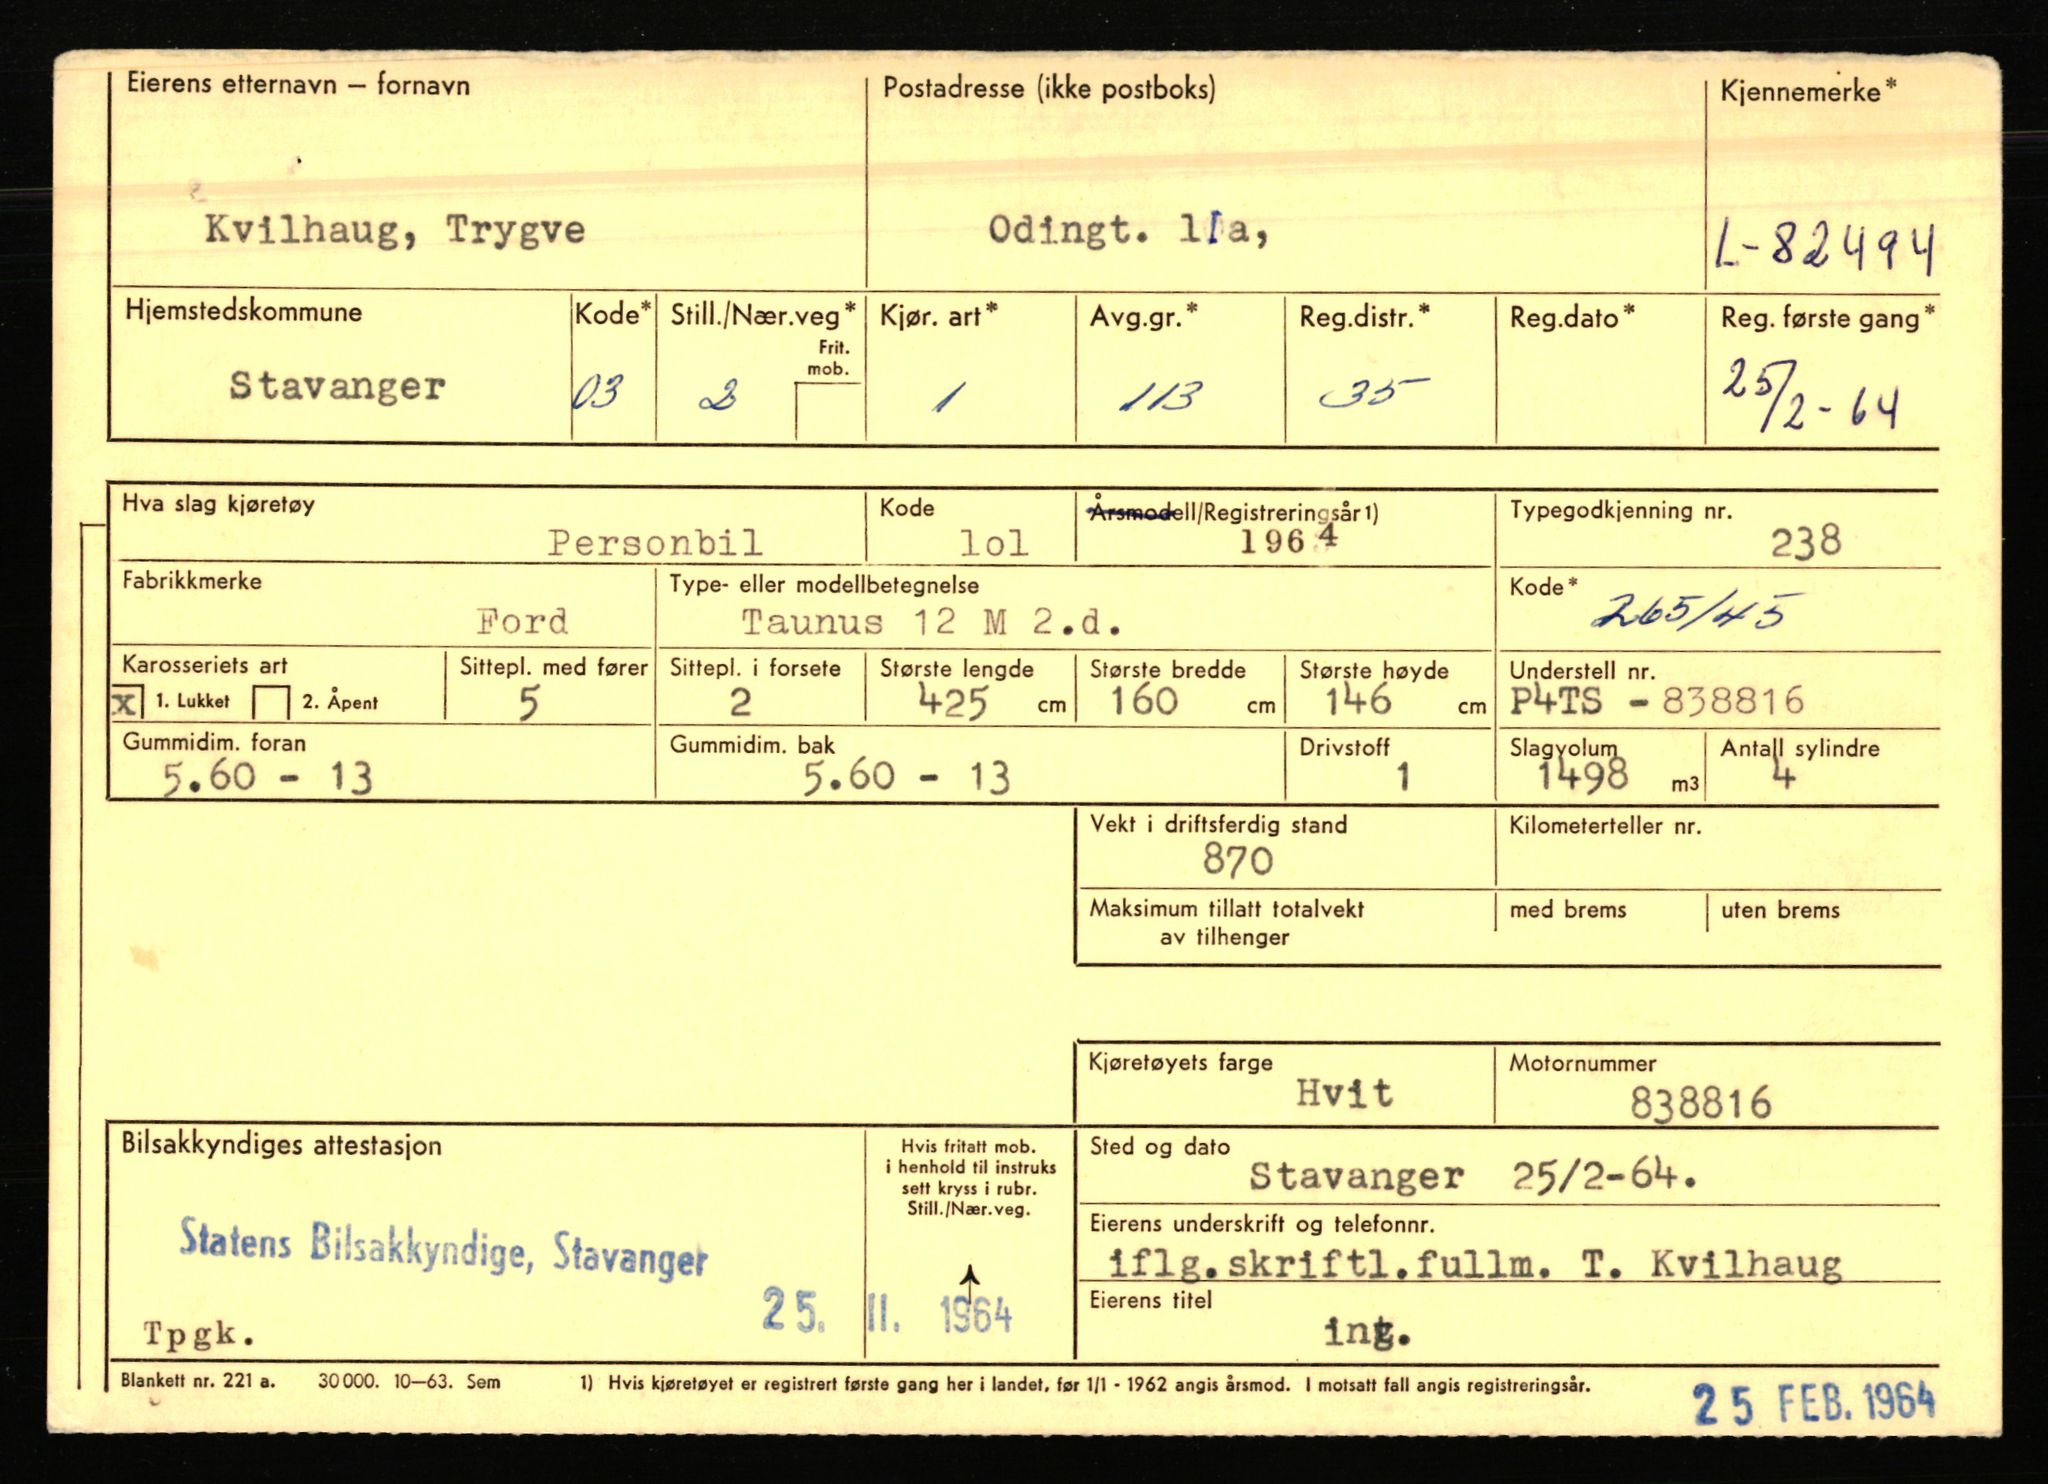 Eierens etternavn – fornavn
Postadresse (ikke postboks)
Kjennemerke*
Kvilhaug, Trygve
Odingt. 11a,
L-82494
Hjemstedskommune
Kode*
Still./Nær.veg*
Frit. mob.
Kjør. art*
Avg.gr.*
Reg.distr.*
Reg.dato*
Reg. første gang*
Stavanger
03
2
1
113
35
25/2-64
Hva slag kjøretøy
Kode
Årsmodell/Registreringsår1)
Typegodkjenning nr.
Personbil
lol
1964
238
Fabrikkmerke
Type- eller modellbetegnelse
Kode*
Ford
Taunus 12 M 2.d.
265/45
Karosseriets art
Sittepl. med fører
Sittepl. i forsete
Største lengde
Største bredde
Største høyde
Understell nr.
x 1. Lukket 2. Åpent
5
2
425 cm
160 cm
146 cm
P4TS - 838816
Gummidim. foran
Gummidim. bak
Drivstoff
Slagvolum
Antall sylindre
5.60 - 13
5.60 - 13
1
1498 m3
4
Vekt i driftsferdig stand
Kilometerteller nr.
870
Maksimum tillatt totalvekt
av tilhenger
med brems
uten brems
Kjøretøyets farge
Motornummer
Hvit
838816
Bilsakkyndiges attestasjon
Hvis fritatt mob.
i henhold til instruks
sett kryss i rubr.
Still./Nær.veg.
Sted og dato
Stavanger 25/2-64.
Statens Bilsakkyndige, Stavanger
25. II. 1964
Tpgk.
Eierens underskrift og telefonnr.
iflg.skriftl.fullm. T. Kvilhaug
Eierens titel
ing.
Blankett nr. 221 a. 30 000. 10–63. Sem
1) Hvis kjøretøyet er registrert første gang her i landet, før 1/1 - 1962 angis årsmod. I motsatt fall angis registreringsår.
25 FEB. 1964